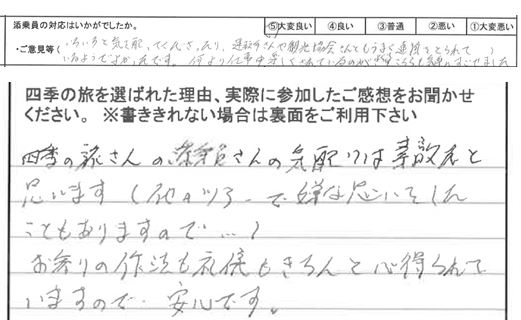 添乗員の対応はいかがでしたか。 ⑤大変良い ④良い ③普通 ②悪い ①大変悪い
・ご意見等( いろいろと気を配ってくださったり、運転手さんや観光協会さんともうまく連携をとられて
いるようですが、 何より仕事中楽しくされているのが こちらも
四季の旅を選ばれた理由、実際に参加したご感想をお聞かせ
ください。 ※書ききれない場合は裏面をご利用下さい
四季の旅さんの添乗員さんの気配りは素敵だと
思います(他のツアーで嫌な思いをした
こともありますので…)
お参りの作法も礼儀もきちんと心得られて
いますので 安心です。